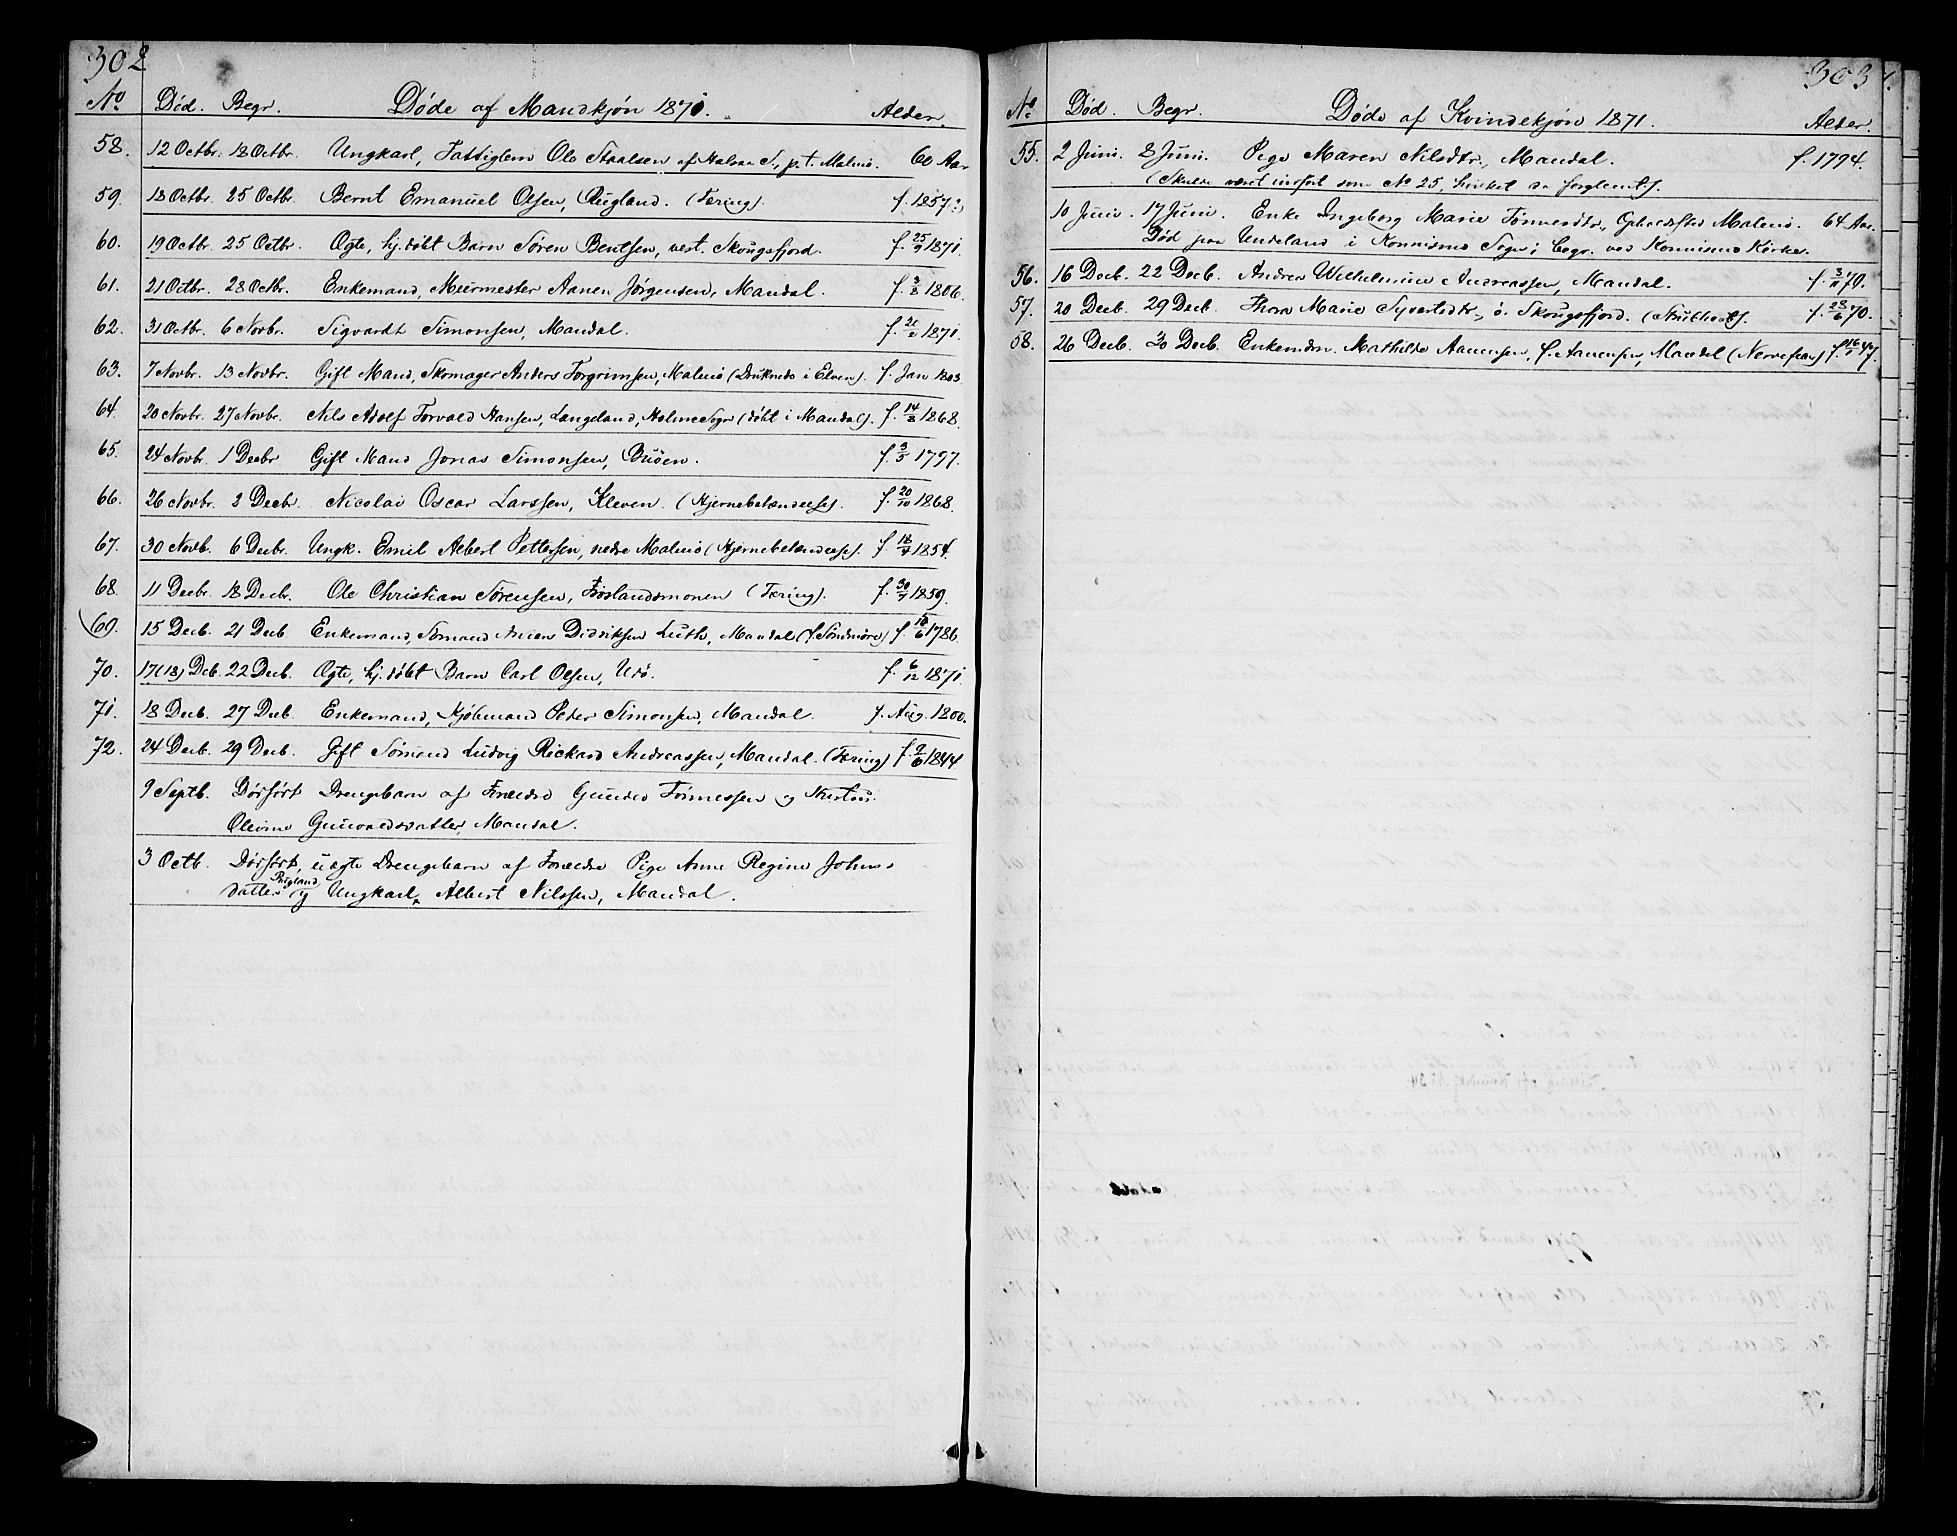 302
No Död. Begr. Döde af Mandkjön 1871. Alder.
58. 12 Octbr. 18 Octbr. Ungkarl, Fattiglem Ole Staalsen af Halsaa S., p. t. Malmö. 60 Aar
59. 18 Octbr. 25 Octbr. Bernt Emanuel Olsen, Rugland. (Tæring). f. 1857(?)
60. 19 Octbr. 25 Octbr. Ægte, hj. döbt Barn Sören Bentsen, vest. Skougsfjord. f. 25/9 1871.
61. 21 Octbr. 28 Octbr. Enkemand, Muurmester Aanen Jörgensen, Mandal. f. 3/8 1806.
62. 31 Octbr. 6 Novbr. Sigvardt Simonsen, Mandal. f. 21/2 1871.
63. 7 Novbr. 13 Novbr. Gift Mand, Skomager Anders Torgrimsen, Malmö (Druknede i Elven). f. Jan. 1803.
64. 20 Novbr. 27 Novbr. Nils Adolf Torvald Hansen, Langeland, Holme Sogn (döbt i Mandal). f. 14/8 1868.
65. 24 Novbr. 1 Decbr. Gift Mand Jonas Simonsen, Buöen. f. 3/5 1797.
66. 26 Novbr. 2 Decbr. Nicolai Oscar Larssen, Kleven. (Hjernebetændelse). f. 20/10 1868.
67. 30 Novb. 6 Decbr. Ungk. Emil Albert Pettersen, nedre Malmö (Hjernebetændelse). f. 18/4 1854.
68. 11 Decbr. 18 Decbr. Ole Christian Sörensen, Fröslandsmonen (Tæring). f. 30/7 1859.
69. 15 Decb. 21 Decb. Enkemand, Sömand Didriksen Luth, Mandal (f. Söndmöre) f. 18/6 1786.
70. 17(18) Deb. 22 Decb. Ægte, hj. döbt Barn Carl Olsen, Udö. f. 6/12 1871.
71. 18 Decb. 27 Decb. Enkemand, Kjöbmand Peter Simonsen, Mandal. f. Aug. 1800.
72. 24 Decb. 29 Decb. Gift Sömand Ludvig Rickard Andreassen, Mandal. (Tæring) f. 9/6 1844
9 Septb. Dödfödt Drengebarn af Forældre Gunder Tönnessen og
Olevine Gunvaldsdatter, Mandal.
3 Octb. Dödfödt, uægte Drengebarn af Forældre Pige Anne Regine Johns-
datter Rugland og Ungkarl Albert Nilssen, Mandal.
303
No Död. Begr. Döde af Kvindekjön 1871. Alder.
55. 2 Juni. 8 Juni. Pige Maren Nilsdtr., Mandal. f. 1794.
(Skulde været indfört som No 25, hvilket da forglemtes).
10 Juni. 17 Juni. Enke Ingeborg Marie Tönnesdtr., Malmö. 64 Aar.
Död paa Undeland i Konnismo Sogn; begr. ved Konnismo Kirke.
56. 16 Decb. 22 Decb. Andrea Wilhelmine Andreassen, Mandal. f. 3/11 70.
57. 20 Decb. 29 Decb. Thora Marie Syvertsdtr., ö. Skougsfjord. (Strubhoste). f. 28/6 70.
58. 26 Decb. 30 Decb. Mathilde Aanensen, f. Aanensen, Mandal (Nervefeber) f. 16/1 47.